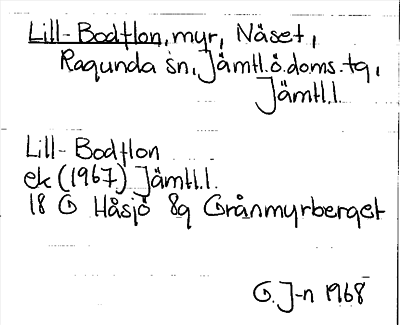 Lill-Bodflon, myr, Näset,
Ragunda sn, Jämtl.ö.doms.tg,
Jämtl.l.
Lill-Bodflon
ek (1967) Jämtl.l.
18 G Håsjö 8g Grånmyrberget
G. J-n 1968